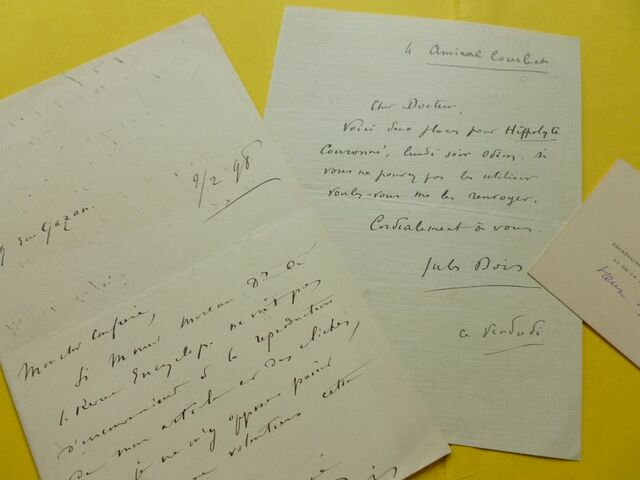 9/2 98
9 rue Gazan.
Mon cher confrère,
Si Monsieur Moreau Dr de
la Revue Encyclop. ne voit pas
d'inconvénient à la reproduction
de mon article et des clichés,
je ne m'y oppose pour
volontiers cette
4 Amiral Courbet
Cher Docteur,
Voici deux places pour Hippolyte
Couronné, lundi soir Odéon. Si
vous ne pouvez pas les utiliser
voulez-vous me les renvoyer.
Cordialement à vous.
Jules Bois
ce vendredi
ET DE LA